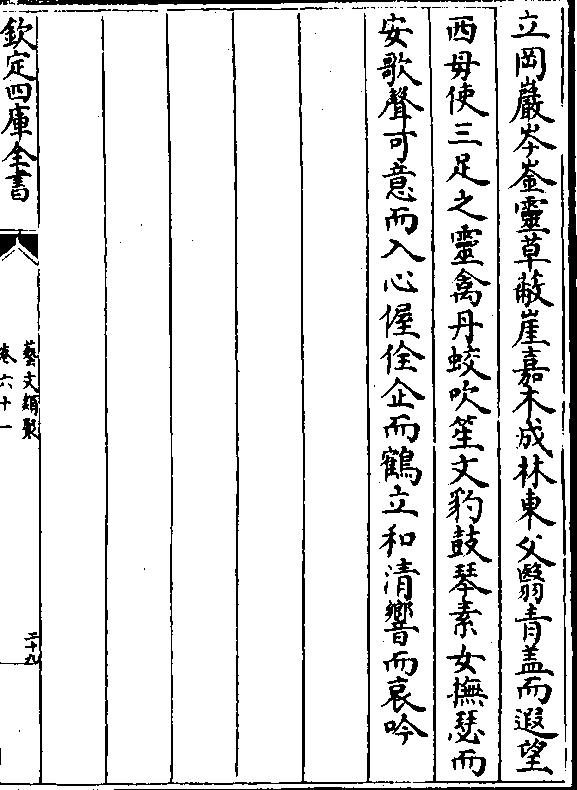 立岡巖岑崟靈草蔽崖嘉木成林東父翳青盖而遐望
西毋使三足之靈禽丹蛟吹笙文豹鼓琴素女撫瑟而
安歌聲可意而入心偓佺企而鶴立和清響而哀吟
欽定四庫全書
藝文類聚
卷六十一
二十九